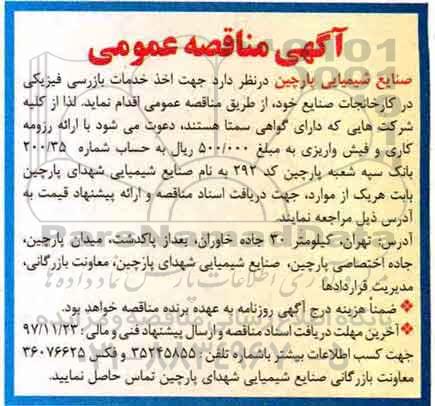 آگهی مناقصه عمومی
صنایع شیمیایی پارچین درنظر دارد جهت اخذ خدمات بازرسی فیزیکی
در کارخانجات صنایع خود، از طریق مناقصه عمومی اقدام نماید. لذا از کلیه
شرکت هایی که دارای گواهی سمتا هستند، دعوت می شود با ارائه رزومه
کاری و فیش واریزی به مبلغ ۵۰۰/۰۰۰ ریال به حساب شماره ۲۰۰/۳۵
بانک سپه شعبه پارچین کد ۲۹۲ به نام صنایع شیمیایی شهدای پارچین
بابت هریک از موارد، جهت دریافت اسناد مناقصه و ارائه پیشنهاد قیمت به
آدرس ذیل مراجعه نمایند.
آدرس: تهران، کیلومتر ۳۰ جاده خاوران، بعداز پاکدشت، میدان پارچین،
جاده اختصاصی پارچین، صنایع شیمیایی شهدای پارچین، معاونت بازرگانی،
مدیریت قراردادها
❖ ضمناً هزینه درج آگهی روزنامه به عهده برنده مناقصه خواهد بود.
❖ آخرین مهلت دریافت اسناد مناقصه و ارسال پیشنهاد فنی و مالی: ۹۷/۱۱/۲۳
جهت کسب اطلاعات بیشتر باشماره تلفن: ۳۵۲۴۵۸۵۵ و فکس ۳۶۰۷۶۶۲۵
معاونت بازرگانی صنایع شیمیایی شهدای پارچین تماس حاصل نمایید.
ParsNamadData